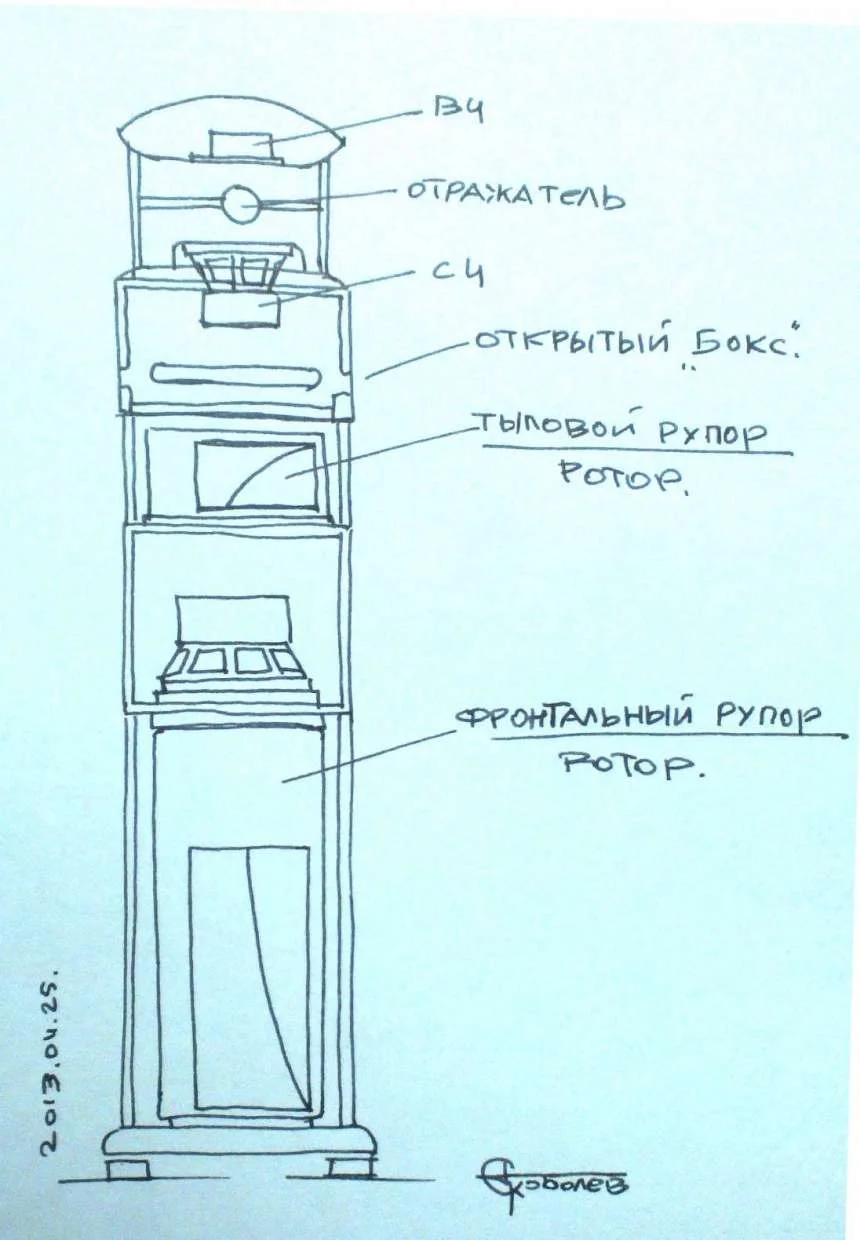 ВЧ
ОТРАЖАТЕЛЬ
СЧ
ОТКРЫТЫЙ „БОКС".
ТЫЛОВОЙ РУПОР
РОТОР.
ФРОНТАЛЬНЫЙ РУПОР
РОТОР.
2013.04.25.